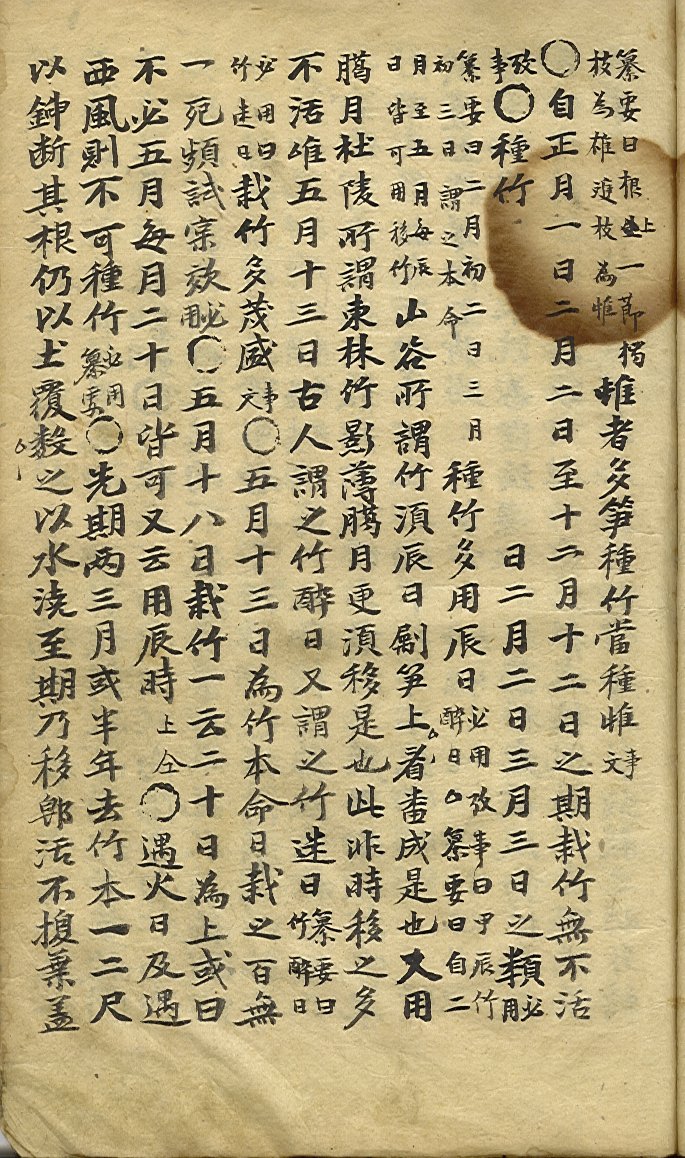 纂要曰根上一節獨枝為雄𨀕枝為惟惟者多笋種竹當種惟事文
○自正月一日二月二日至十二月十二日之期栽竹無不活
攷事○種竹日二月二日三月三日之類必用
纂要曰二月初二日三月初三日謂之本命種竹多用辰日必用攷事曰甲辰竹醉日○纂要曰自二
月至五月每辰日皆可用移竹山谷所謂竹須辰日劚笋上看畨成是也又用
臈月杜陵所謂東林竹影薄臈月更須移是也此非時移之多
不活唯五月十三日古人謂之竹醉日又謂之竹迷日纂要曰竹醉日
必用曰竹迷日栽竹多茂盛事文○五月十三日為竹本命日栽之百無
一死頻試宲效必用○五月十八日栽竹一云二十日為上或曰
不必五月每月二十日皆可又云用辰時上仝○遇火日及遇
西風則不可種竹必用纂要○先期兩三月或半年去竹本一二尺
以鉢断其根仍以土覆数之以水澆至期乃移郎活不損葉盖